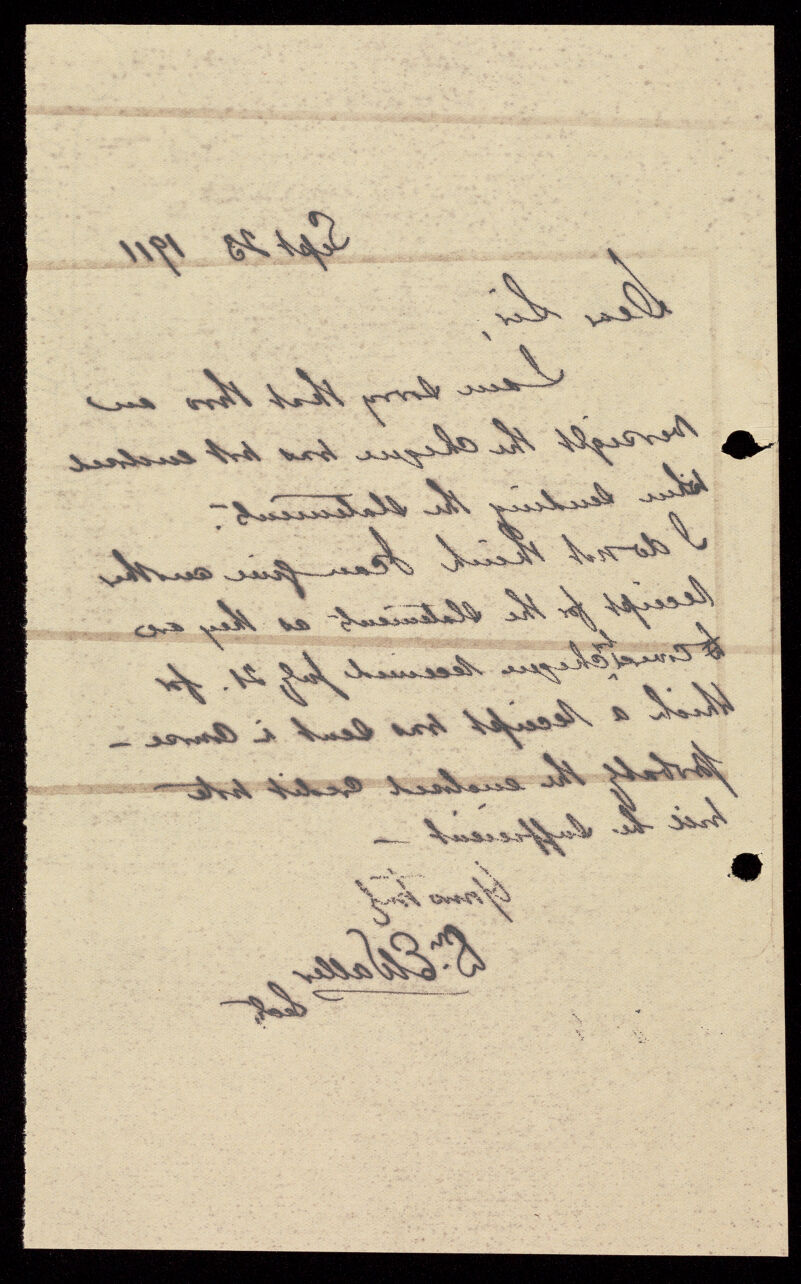 Sept 23 1911
Dear Sir,
I am sorry that thro an
oversight the cheque was not enclosed
when sending the statements.
I do not think I can give another
receipt for the statements as they are
to cover cheque received July 21. for
which a receipt was sent in course –
probably the enclosed credit note
will be sufficient –
Yours truly
E Waller
Sect.